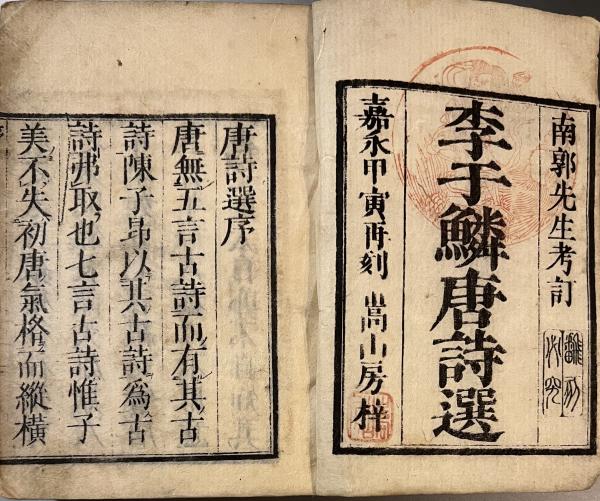 南郭先生考訂
李于鱗唐詩選
嘉永甲寅再刻 嵩山房梓
唐詩選序
唐無五言古詩而有其古
詩陳子昂以其古詩爲古
詩弗取也七言古詩惟子
美不失初唐氣格而縱横